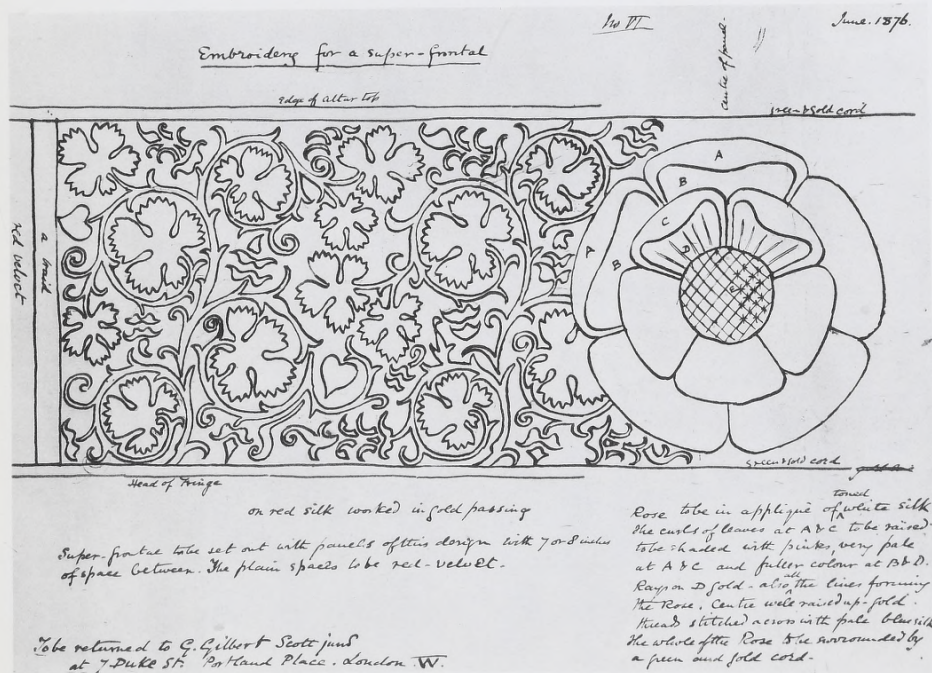 No VI
June. 1876.
Embroidery for a super-frontal
centre of panel.
edge of altar top
green & gold cord
A
B
C
D
A
B
red velvet
a braid
green & gold cord
Head of Fringe
on red silk worked in gold passing
Super-frontal to be set out with panels of this design with 7 or 8 inches
of space between. The plain spaces to be red-velvet.
To be returned to G. Gilbert Scott junr
at 7 Duke St. Portland Place. London W.
toned
Rose to be in appliqué of white silk
the curls of leaves at A & C to be raised
to be shaded with pinks, very pale
at A & C and fuller colour at B & D.
Rays on D gold - also all the lines forming
the Rose. Centre well raised up - gold.
thread stitched across with pale blue silk
the whole of the Rose to be surrounded by
a green and gold cord.